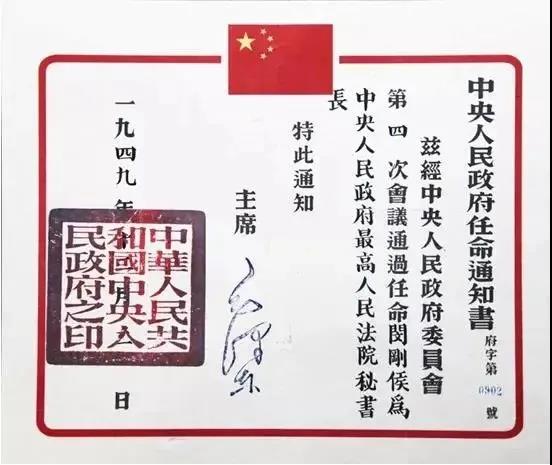 中央人民政府任命通知書
府字第0902號
兹經中央人民政府委員會
第四次會議通過任命閔剛侯爲
中央人民政府最高人民法院秘書
長
特此通知
主席 毛澤東
一九四九年 月 日
中華人民共
和國中央人
民政府之印